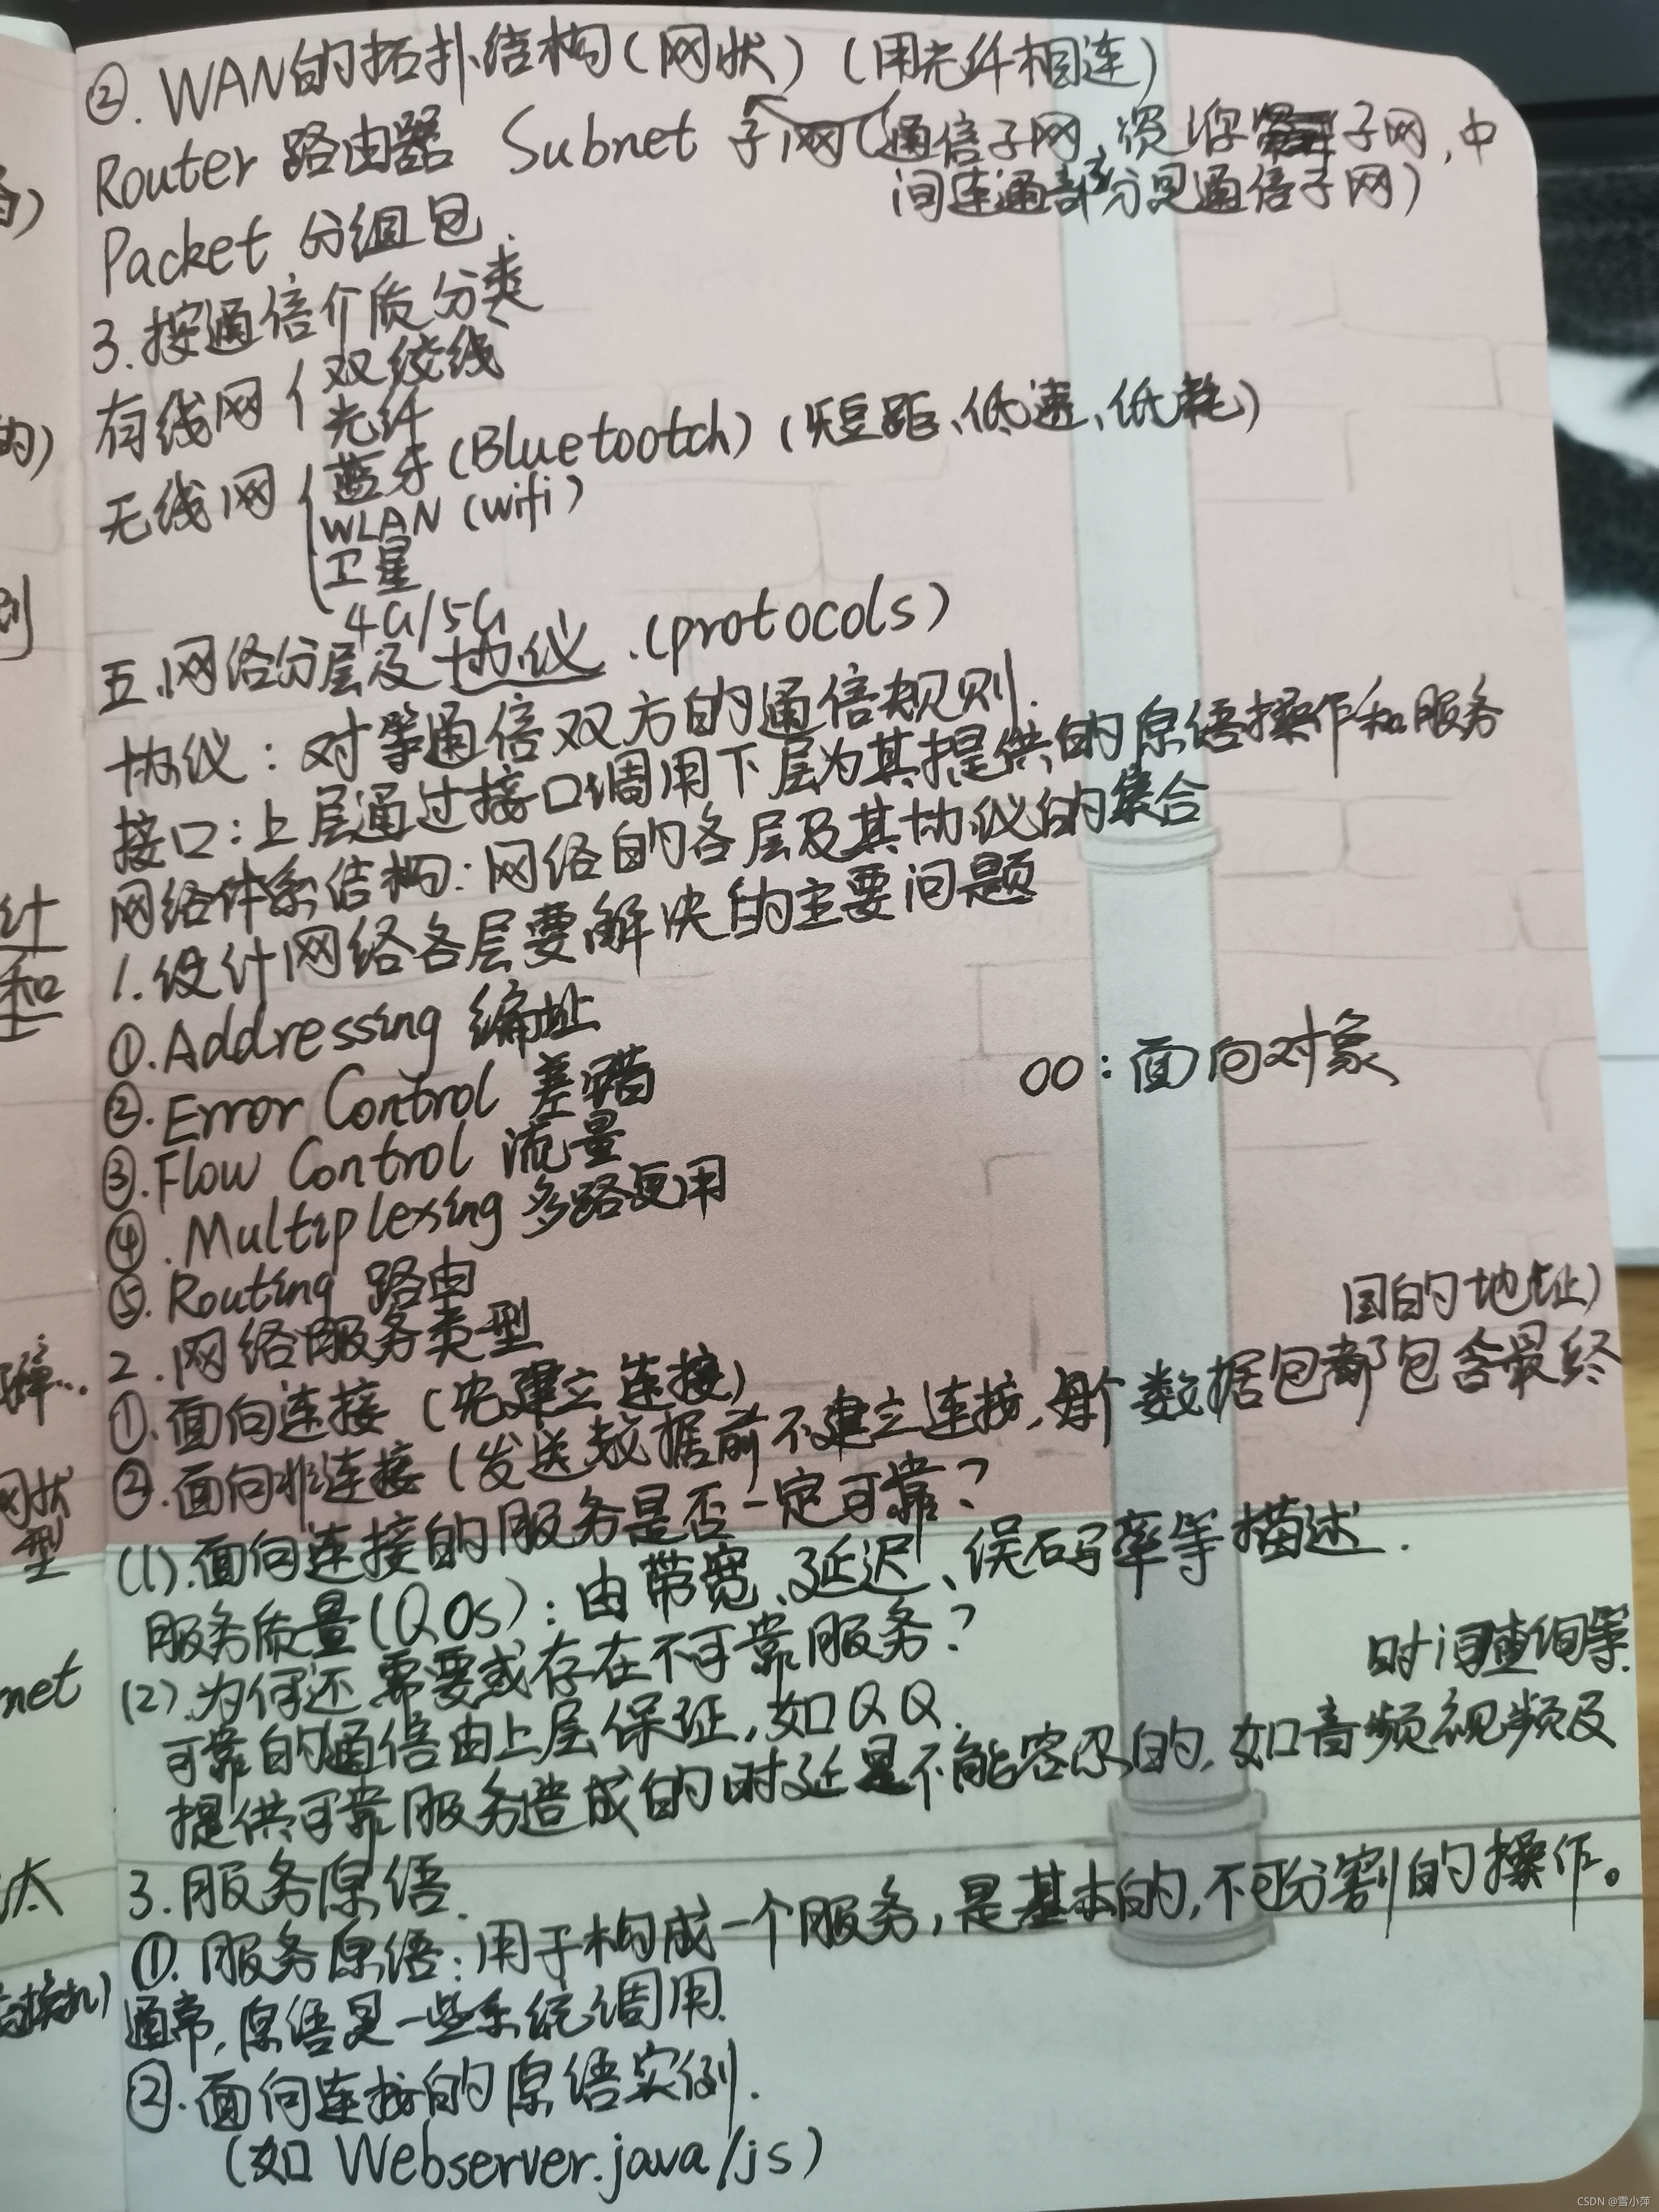 ②. WAN的拓扑结构(网状) (用光纤相连)
Router 路由器 Subnet 子网(通信子网, 资源子网, 中
间连通部分是通信子网)
Packet 分组包.
3. 按通信介质分类
有线网{双绞线
光纤
无线网{蓝牙(Bluetootch) (短距、低速、低耗)
WLAN (wifi)
卫星
4G/5G
五.网络分层及协议.(protocols)
协议: 对等通信双方的通信规则.
接口: 上层通过接口调用下层为其提供的原语操作和服务
网络体系结构: 网络的各层及其协议的集合
1. 设计网络各层要解决的主要问题
①. Addressing 编址
②. Error Control 差错
OO: 面向对象
③. Flow Control 流量
④. Multiplexing 多路复用
⑤. Routing 路由
2. 网络服务类型
①. 面向连接 (先建立连接)
②. 面向非连接 (发送数据前不建立连接, 每个数据包都包含最终
目的地址)
(1). 面向连接的服务是否一定可靠?
服务质量(QOs): 由带宽、延迟、误码率等描述.
(2). 为何还需要或存在不可靠服务?
可靠的通信由上层保证, 如QQ.
提供可靠服务造成的时延是不能容忍的, 如音频视频及
时间查询等.
3. 服务原语.
①. 服务原语: 用于构成一个服务, 是基本的, 不可分割的操作。
通常, 原语是一些系统调用.
②. 面向连接的原语实例.
(如 Webserver.java/js)
的)
计
和
网状
型
net
太
CSDN @雪小萍